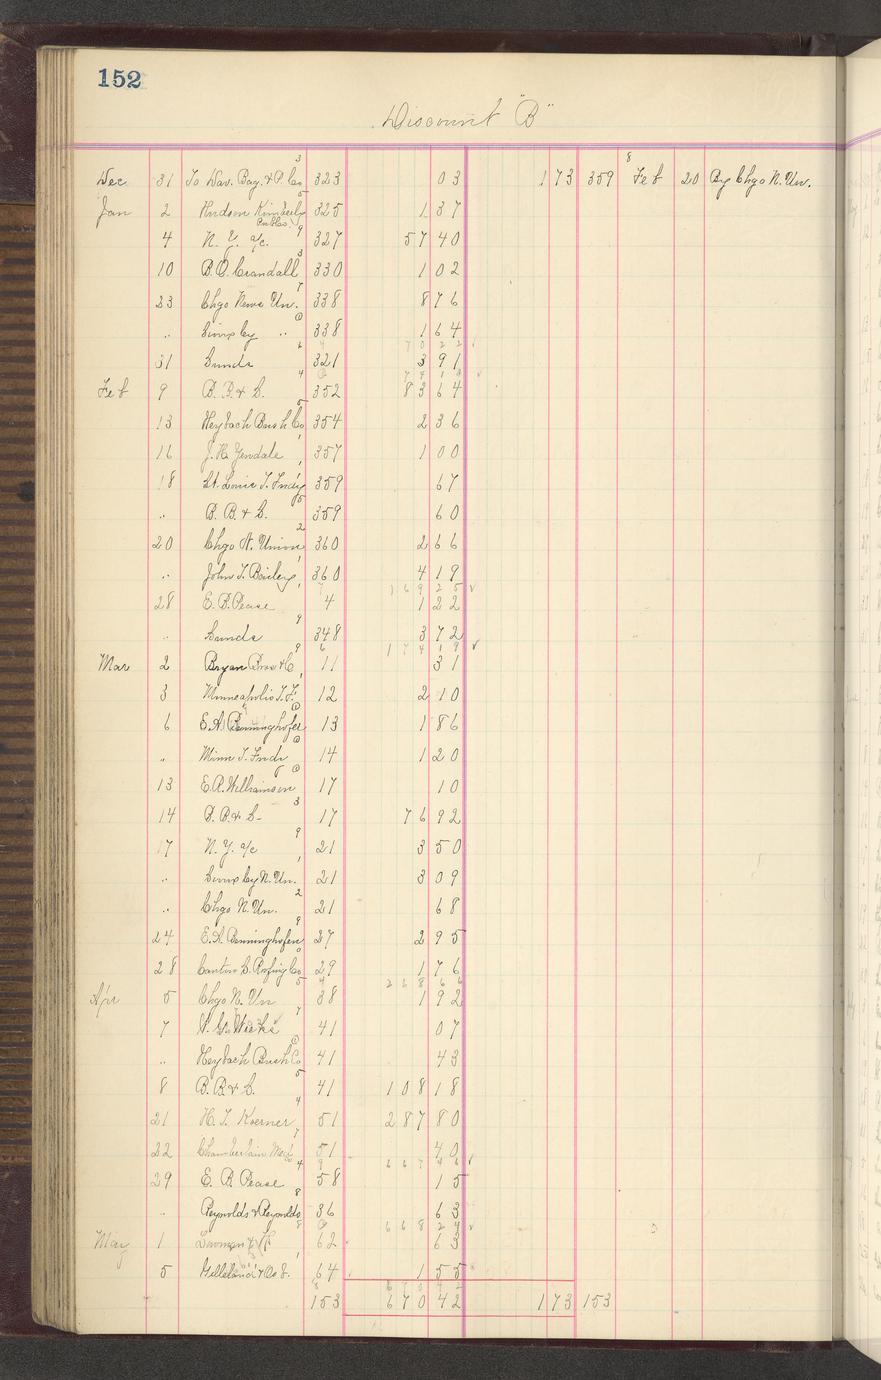 152
Discount "B"
Dec 31 To Dav. Bag. & P. Co 323 03 1 73 359 Feb 20 By Chgo N. Un.
Jan 2 Hudson Kimberly Pub Co 325 1 37
4 N. Y. a/c. 327 57 40
10 B. O. Crandall 330 1 02
23 Chgo News Un. 338 8 76
" Sioux Cy " 338 1 64
70 22
31 Sunds 321 3 91
74 13
Feb 9 B. B. & S. 352 83 64
13 Heybach Bush Co 354 2 36
16 J. H. 357 1 00
18 St. Louis T. Fndy 359 67
" B. B. & S. 359 60
20 Chgo N. Union 360 2 66
" John T. 360 4 19
169 25
28 E. B. Pease 4 1 22
" Sunds 348 3 72
174 19
Mar 2 Bryan Bros & C 11 31
3 Minneapolis T. F. 12 2 10
6 E. A. Benninghofen 13 1 86
" Minn T. Fndr 14 1 20
13 E. R. Williamson 17 10
14 B. B. & S. 17 76 92
17 N. Y. a/c 21 3 50
" Sioux Cy N. Un. 21 3 09
" Chgo N. Un. 21 68
24 E. A. Benninghofen 27 2 95
28 Canton S. Roofing Co 29 1 76
268 66
Apr 5 Chgo N. Un 38 1 92
7 41 07
" Heybach Bush Co 41 43
8 B. B. & S. 41 108 18
21 H. T. Koerner 51 287 80
22 Chamberlain Med 51 40
667 46
29 E. B. Pease 58 15
" Reynolds & Reynolds 36 63
668 24
May 1 62 63
5 64 1 55
670 42
153 670 42 1 73 153